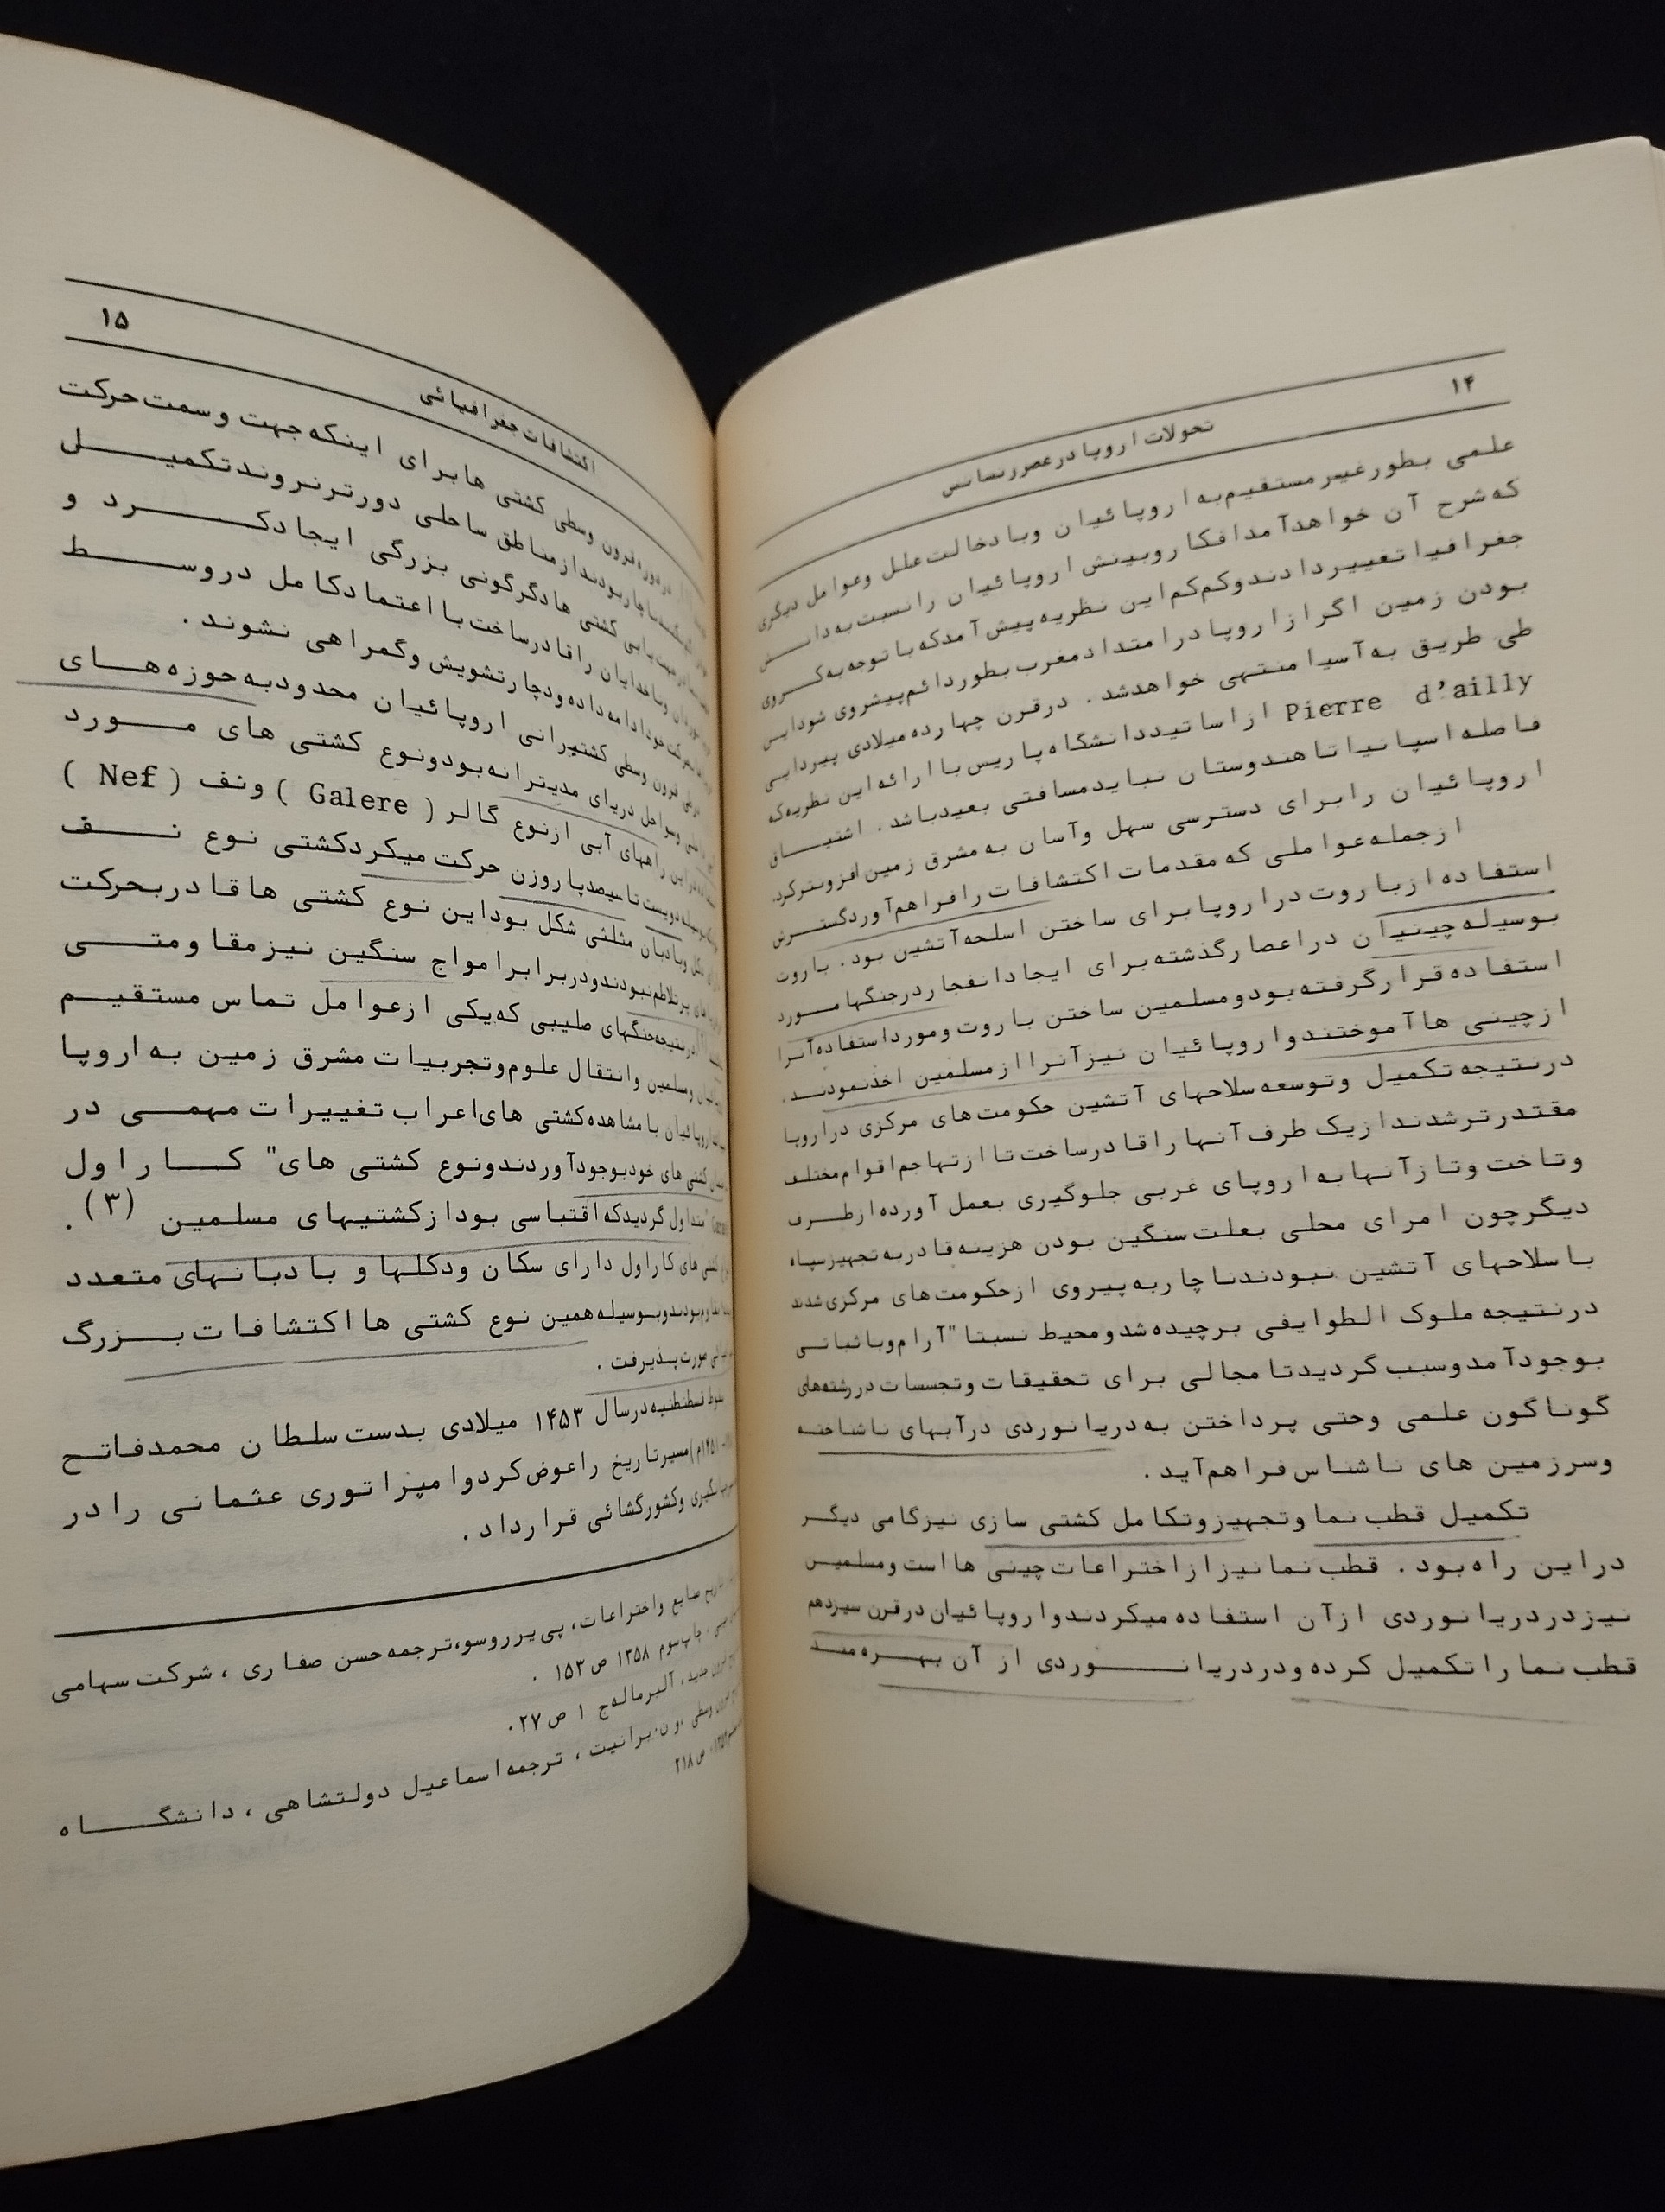 ۱۴
تحولات اروپا در عصر رنسانس
علمی بطور غیر مستقیم به اروپائیان وبا دخالت علل وعوامل دیگری
که شرح آن خواهد آمد افکار وبینش اروپائیان را نسبت به دانش
جغرافیا تغییر دادند وکم کم این نظریه پیش آمد که با توجه به کروی
بودن زمین اگر از اروپا در امتداد مغرب بطور دائم پیشروی شود این
طی طریق به آسیا منتهی خواهد شد . در قرن چهارده میلادی پیردایی
Pierre d'ailly از اساتید دانشگاه پاریس با ارائه این نظریه که
فاصله اسپانیا تا هندوستان نباید مسافتی بعید باشد . اشتیاق
اروپائیان را برای دسترسی سهل وآسان به مشرق زمین افزونتر کرد.
از جمله عواملی که مقدمات اکتشافات را فراهم آورد گسترش
استفاده از باروت در اروپا برای ساختن اسلحه آتشین بود . باروت
بوسیله چینیان در اعصار گذشته برای ایجاد انفجار در جنگها مورد
استفاده قرار گرفته بود ومسلمین ساختن باروت ومورد استفاده آنرا
از چینی ها آموختند واروپائیان نیز آنرا از مسلمین اخذ نمودند .
در نتیجه تکمیل وتوسعه سلاحهای آتشین حکومت های مرکزی در اروپا
مقتدرتر شدند از یک طرف آنها را قادر ساخت تا از تهاجم اقوام مختلف
وتاخت وتاز آنها به اروپای غربی جلوگیری بعمل آورده از طرف
دیگر چون امرای محلی بعلت سنگین بودن هزینه قادر به تجهیز سپاه
با سلاحهای آتشین نبودند ناچار به پیروی از حکومت های مرکزی شدند
در نتیجه ملوک الطوایفی برچیده شد ومحیط نسبتا "آرام وباثباتی
بوجود آمد وسبب گردید تا مجالی برای تحقیقات وتجسسات در رشته های
گوناگون علمی وحتی پرداختن به دریانوردی در آبهای ناشناخته
وسرزمین های ناشناس فراهم آید .
تکمیل قطب نما وتجهیز وتکامل کشتی سازی نیز گامی دیگر
در این راه بود . قطب نما نیز از اختراعات چینی ها است ومسلمین
نیز در دریانوردی از آن استفاده میکردند واروپائیان در قرن سیزدهم
قطب نما را تکمیل کرده ودر دریانوردی از آن بهره مند
۱۵
اکتشافات جغرافیائی
در دوره قرون وسطی کشتی ها برای اینکه جهت وسمت حرکت
ناچار بودند از مناطق ساحلی دورتر نروند تکمیل
در جهت یابی کشتی ها دگرگونی بزرگی ایجاد کرد و
وناخدایان را قادر ساخت با اعتماد کامل در وسط
حرکت خود ادامه داده ودچار تشویش وگمراهی نشوند .
قرون وسطی کشتیرانی اروپائیان محدود به حوزه های
وسواحل دریای مدیترانه بود ونوع کشتی های مورد
در این راههای آبی از نوع گالر ( Galere ) ونف ( Nef )
بوسیله دویست تا سیصد پاروزن حرکت میکرد کشتی نوع نف
وبادبان مثلثی شکل بود این نوع کشتی ها قادر بحرکت
های پرتلاطم نبودند ودر برابر امواج سنگین نیز مقاومتی
در نتیجه جنگهای صلیبی که یکی از عوامل تماس مستقیم
ومسلمین وانتقال علوم وتجربیات مشرق زمین به اروپا
اروپائیان با مشاهده کشتی های اعراب تغییرات مهمی در
کشتی های خود بوجود آوردند ونوع کشتی های" کاراول
متداول گردید که اقتباسی بود از کشتیهای مسلمین (۳) .
کشتی های کاراول دارای سکان ودکلها و بادبانهای متعدد
بودند وبوسیله همین نوع کشتی ها اکتشافات بزرگ
صورت پذیرفت .
سقوط قسطنطنیه در سال ۱۴۵۳ میلادی بدست سلطان محمد فاتح
مسیر تاریخ را عوض کرد وامپراتوری عثمانی را در
وکشورگشائی قرار داد .
تاریخ صنایع واختراعات، پی یر روسو، ترجمه حسن صفاری ، شرکت سهامی
چاپ سوم ۱۳۵۸ ص ۱۵۳ .
جدید ، آلبر ماله ج ۱ ص ۲۷.
وسطی ، و ن. برانیت ، ترجمه اسماعیل دولتشاهی ، دانشگاه
ص ۲۱۸